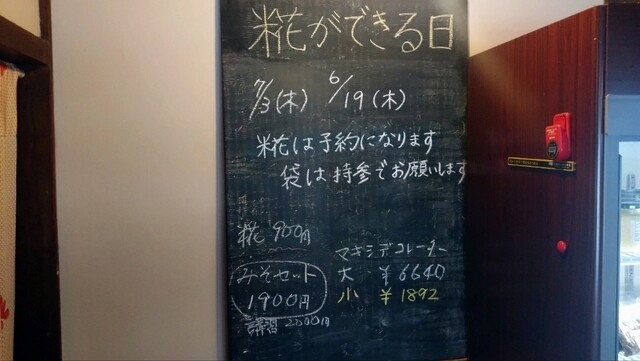 米花ができる日
7/3(木) 6/19(木)
米花は予約になります
袋は持参でお願いします
糀 900円
みそセット
1900円
講習 2000円
マキシデコレーター
大 ¥6640
小 ¥1892